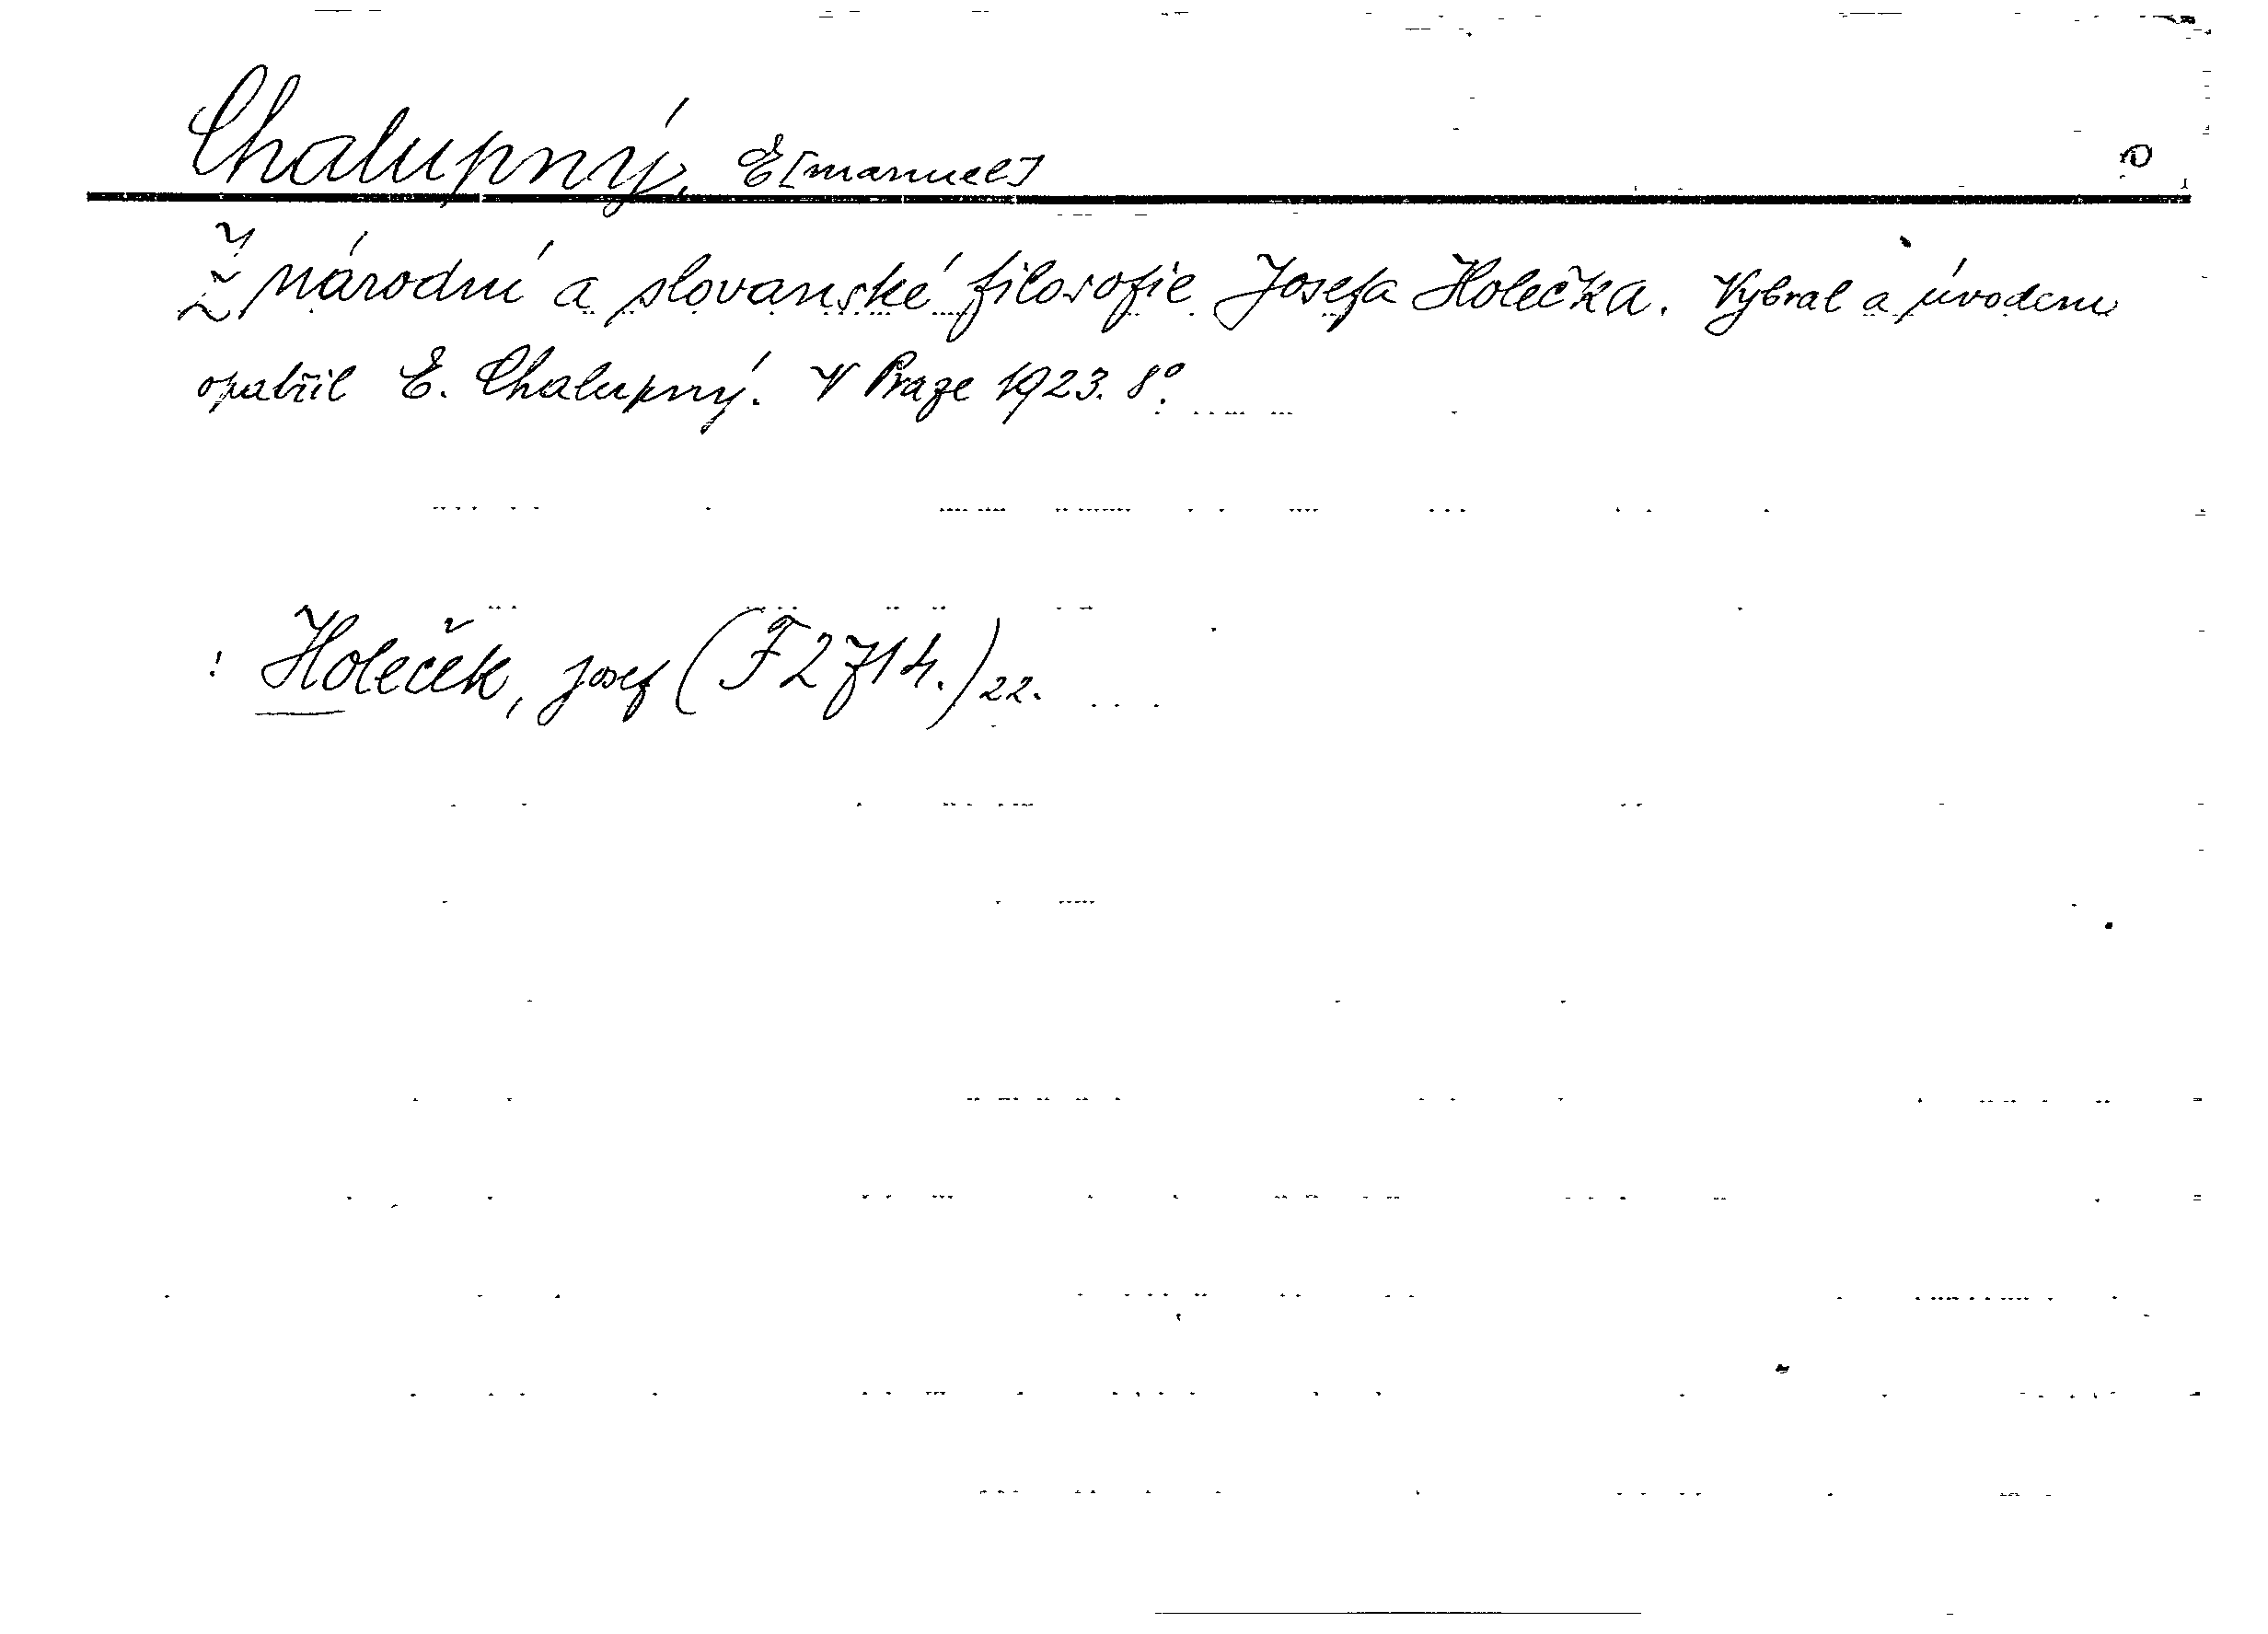 Chalupný, E[manuel]
Z národní a slovanské filosofie Josefa Holečka. Vybral a úvodem
opatřil E. Chalupný. V Praze 1923. 8°.
: Holeček, Josef (F 2714.) 22.